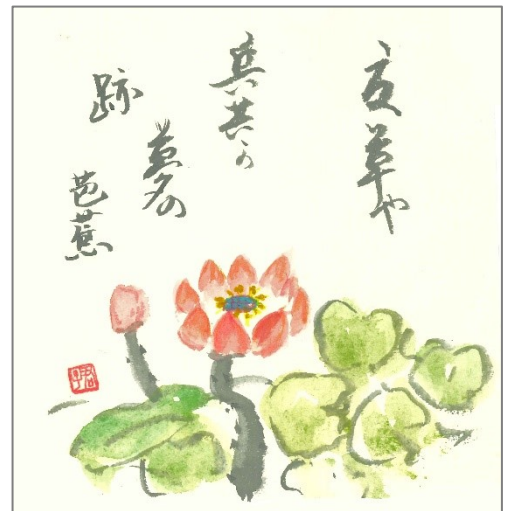 夏草や
兵共か
夢の
跡
芭蕉